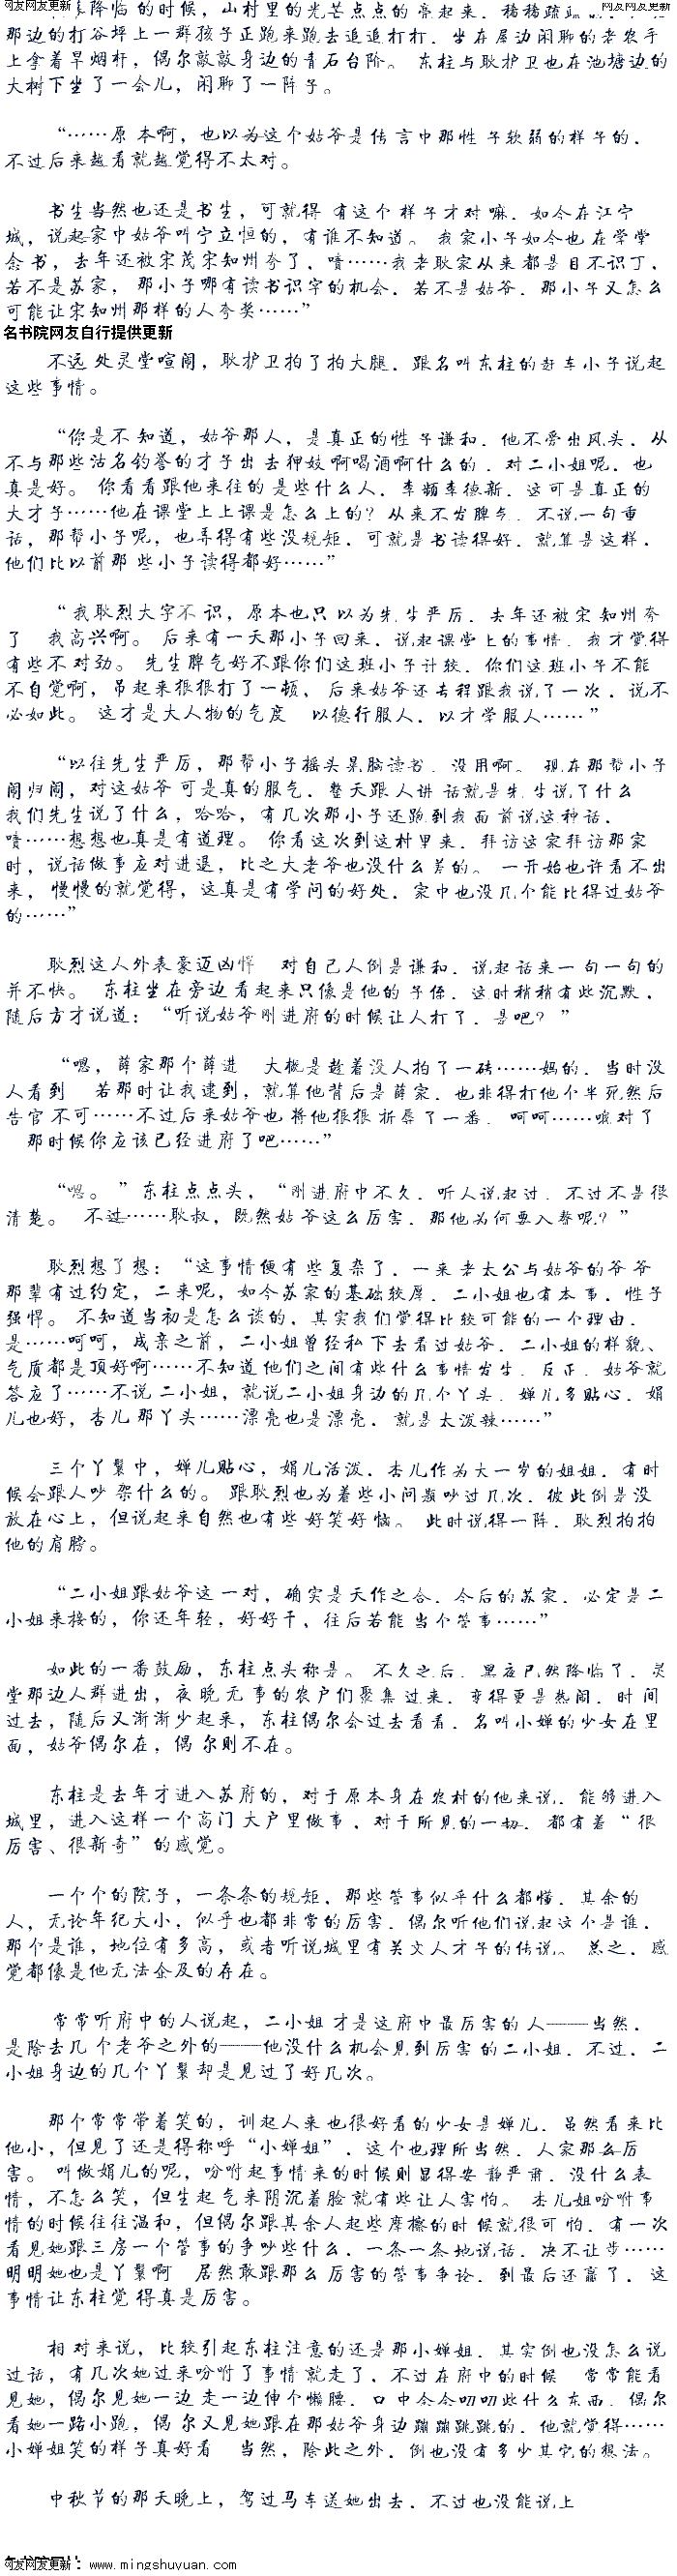 网友网友更新
网友网友更新
降临的时候，山村里的光芒点点的亮起来，稀稀疏疏的，
那边的打谷坪上一群孩子正跑来跑去追追打打，坐在屋边闲聊的老农手
上拿着旱烟杆，偶尔敲敲身边的青石台阶。 东柱与耿护卫也在池塘边的
大树下坐了一会儿，闲聊了一阵子。
“……原本啊，也以为这个姑爷是传言中那性子软弱的样子的，
不过后来越看就越觉得不太对。
书生当然也还是书生，可就得有这个样子才对嘛，如今在江宁
城，说起家中姑爷叫宁立恒的，有谁不知道。 我家小子如今也在学堂
念书，去年还被宋茂宋知州夸了，啧……我老耿家从来都是目不识丁，
若不是苏家，那小子哪有读书识字的机会，若不是姑爷，那小子又怎么
可能让宋知州那样的人夸奖……”
名书院网友自行提供更新
不远处灵堂喧闹，耿护卫拍了拍大腿，跟名叫东柱的赶车小子说起
这些事情。
“你是不知道，姑爷那人，是真正的性子谦和，他不爱出风头，从
不与那些沽名钓誉的才子出去狎妓啊喝酒啊什么的，对二小姐呢，也
真是好。 你看看跟他来往的是些什么人，李频李德新，这可是真正的
大才子……他在课堂上上课是怎么上的？从来不发脾气，不说一句重
话，那帮小子呢，也弄得有些没规矩，可就是书读得好，就算是这样，
他们比以前那些小子读得都好……”
“我耿烈大字不识，原本也只以为先生严厉，去年还被宋知州夸
了 我高兴啊。 后来有一天那小子回来，说起课堂上的事情，我才觉得
有些不对劲。 先生脾气好不跟你们这班小子计较，你们这班小子不能
不自觉啊，吊起来狠狠打了一顿，后来姑爷还专程跟我说了一次，说不
必如此。 这才是大人物的气度 以德行服人，以才学服人……”
“以往先生严厉，那帮小子摇头晃脑读书，没用啊。 现在那帮小子
闹归闹，对这姑爷可是真的服气，整天跟人讲话就是先生说了什么
我们先生说了什么，哈哈，有几次那小子还跑到我面前说这种话，
啧……想想也真是有道理。 你看这次到这村里来，拜访这家拜访那家
时，说话做事应对进退，比之大老爷也没什么差的。 一开始也许看不出
来，慢慢的就觉得，这真是有学问的好处，家中也没几个能比得过姑爷
的……”
耿烈这人外表豪迈凶悍 对自己人倒是谦和，说起话来一句一句的
并不快。 东柱坐在旁边看起来只像是他的子侄，这时稍稍有些沉默，
随后方才说道：“听说姑爷刚进府的时候让人打了，是吧？”
“嗯，薛家那个薛进 大概是趁着没人拍了一砖……妈的，当时没
人看到 若那时让我逮到，就算他背后是薛家，也非得打他个半死然后
告官不可……不过后来姑爷也将他狠狠折辱了一番，呵呵……哦对了
那时候你应该已经进府了吧……”
“嗯。”东柱点点头，“刚进府中不久，听人说起过，不过不是很
清楚。 不过……耿叔，既然姑爷这么厉害，那他为何要入赘呢？”
耿烈想了想：“这事情便有些复杂了，一来老太公与姑爷的爷爷
那辈有过约定，二来呢，如今苏家的基础较厚，二小姐也有本事，性子
强悍。 不知道当初是怎么谈的，其实我们觉得比较可能的一个理由，
是……呵呵，成亲之前，二小姐曾经私下去看过姑爷，二小姐的样貌、
气质都是顶好啊……不知道他们之间有些什么事情发生，反正，姑爷就
答应了……不说二小姐，就说二小姐身边的几个丫头，婵儿多贴心，娟
儿也好，杏儿那丫头……漂亮也是漂亮，就是太泼辣……”
三个丫鬟中，婵儿贴心，娟儿活泼，杏儿作为大一岁的姐姐，有时
候会跟人吵架什么的。 跟耿烈也为着些小问题吵过几次，彼此倒是没
放在心上，但说起来自然也有些好笑好恼。 此时说得一阵，耿烈拍拍
他的肩膀。
“二小姐跟姑爷这一对，确实是天作之合，今后的苏家，必定是二
小姐来接的，你还年轻，好好干，往后若能当个管事……”
如此的一番鼓励，东柱点头称是。 不久之后，黑夜已然降临了，灵
堂那边人群进出，夜晚无事的农户们聚集过来，变得更是热闹，时间
过去，随后又渐渐少起来，东柱偶尔会过去看看，名叫小婵的少女在里
面，姑爷偶尔在，偶尔则不在。
东柱是去年才进入苏府的，对于原本身在农村的他来说，能够进入
城里，进入这样一个高门大户里做事，对于所见的一切，都有着“很
厉害、很新奇”的感觉。
一个个的院子，一条条的规矩，那些管事似乎什么都懂，其余的
人，无论年纪大小，似乎也都非常的厉害，偶尔听他们说起这个是谁，
那个是谁，地位有多高，或者听说城里有关文人才子的传说。 总之，感
觉都像是他无法企及的存在。
常常听府中的人说起，二小姐才是这府中最厉害的人——当然，
是除去几个老爷之外的——他没什么机会见到厉害的二小姐，不过，二
小姐身边的几个丫鬟却是见过了好几次。
那个常常带着笑的，训起人来也很好看的少女是婵儿，虽然看来比
他小，但见了还是得称呼“小婵姐”，这个也理所当然，人家那么厉
害。 叫做娟儿的呢，吩咐起事情来的时候则显得安静严肃，没什么表
情，不怎么笑，但生起气来阴沉着脸就有些让人害怕。 杏儿姐吩咐事
情的时候往往温和，但偶尔跟其余人起些摩擦的时候就很可怕，有一次
看见她跟三房一个管事的争吵些什么，一条一条地说话，决不让步……
明明她也是丫鬟啊 居然敢跟那么厉害的管事争论，到最后还赢了，这
事情让东柱觉得真是厉害。
相对来说，比较引起东柱注意的还是那小婵姐，其实倒也没怎么说
过话，有几次她过来吩咐了事情就走了，不过在府中的时候 常常能看
见她，偶尔见她一边走一边伸个懒腰，口中念念叨叨些什么东西，偶尔
看她一路小跑，偶尔又见她跟在那姑爷身边蹦蹦跳跳的，他就觉得……
小婵姐笑的样子真好看 当然，除此之外，倒也没有多少其它的想法。
中秋节的那天晚上，驾过马车送她出去，不过也没能说上
网友网友更新：www.mingshuyuan.com